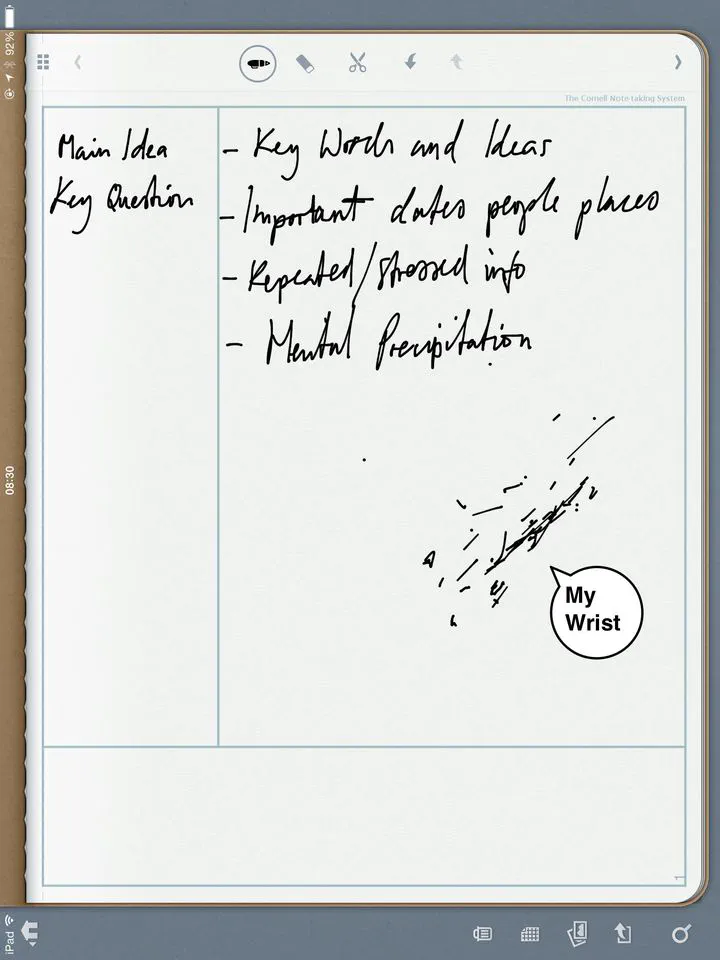 92%
The Cornell Note-taking System
Main Idea
Key Question
- Key Words and Ideas
- Important dates people places
- Repeated/stressed info
- Mental Precipitation
08:30
My
Wrist
1
iPad